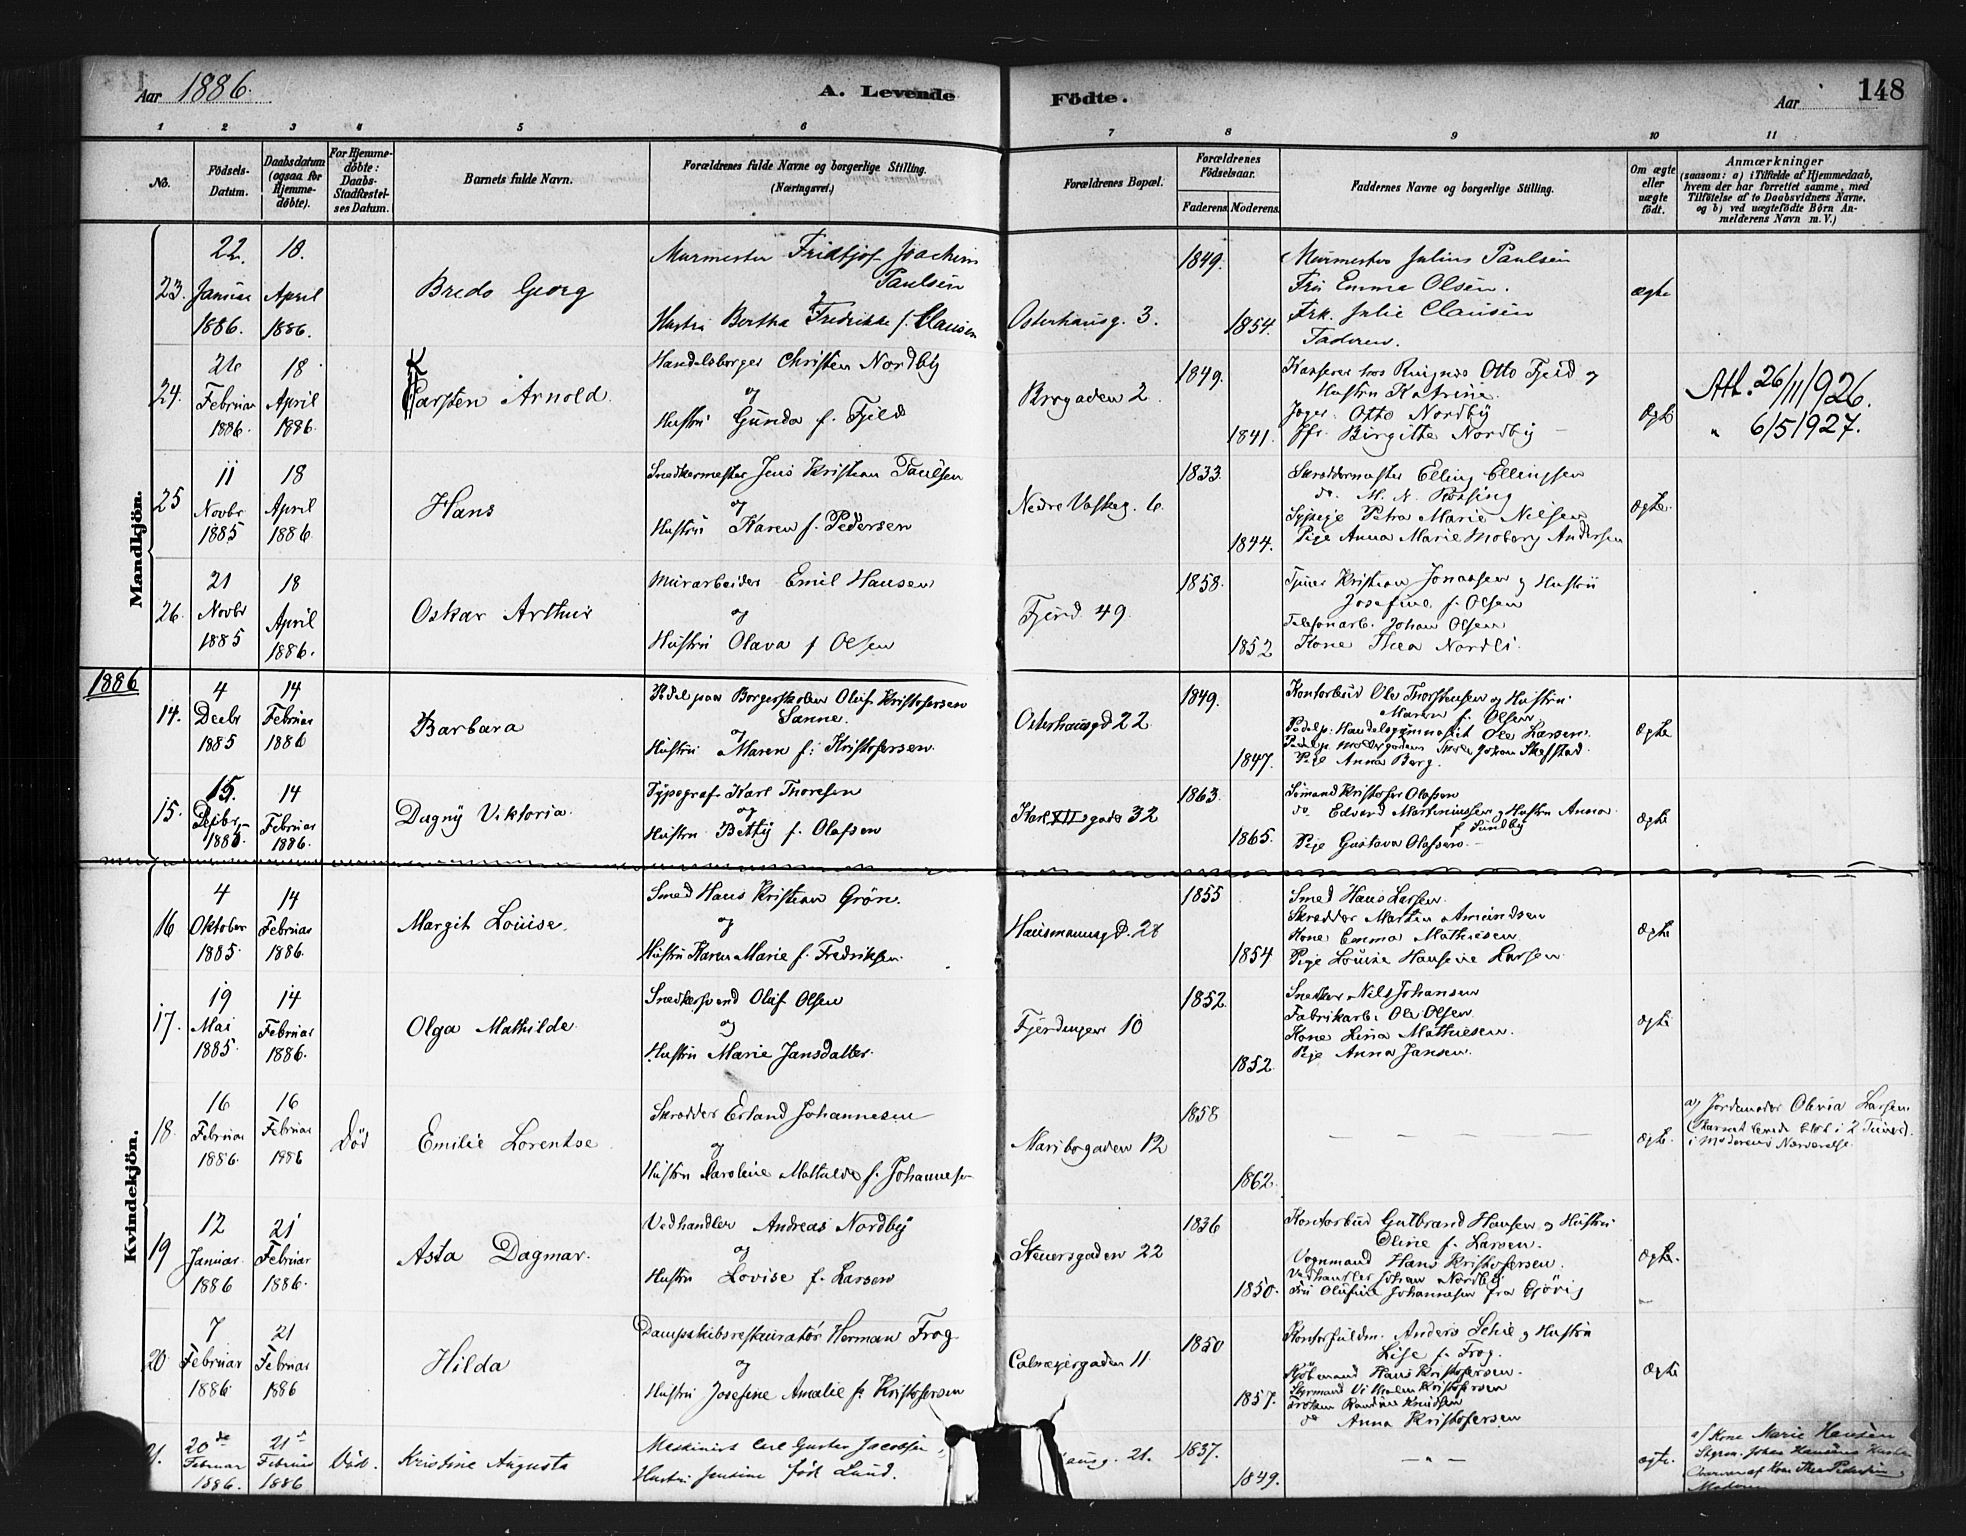 Aar 1886.
A. Levende Födte.
Aar
148
1 2 3 4 5 6 7 8 9 10 11
No.
Födsels-Datum.
Daabsdatum (ogsaa for Hjemme-döbte).
For Hjemme-döbte: Daabs-Stadfæstel-ses Datum.
Barnets fulde Navn.
Forældrenes fulde Navne og borgerlige Stilling. (Næringsvei.)
Forældrenes Bopæl.
Forældrenes Födselsaar.
Faderens. Moderens.
Faddernes Navne og borgerlige Stilling.
Om ægte eller uægte födt.
Anmærkninger
(saasom: a) i Tilfælde af Hjemmedaab, hvem der har forrettet samme, med Tilföielse af to Daabsvidners Navne, og b) ved uægtefödte Börn An-melderens Navn m. V.)
Mandkjön.
23. 22. Januar 1886. 18. April 1886.
Bredo Georg
Murmester Fridtjof Joachim Paulsen
Hustru Bertha Fredrikke f. Clausen
Osterhausg. 3.
1849. 1854.
Murmester Julius Paulsen
Fru Emma Olsen.
Frk. Julie Clausen
Faderen.
ægte
24. 26 Februar 1886. 18 April 1886.
K
Carsten Arnold.
Handelsborger Christen Nordby
og
Hustru Gunda f. Fjeld
Brogaden 2.
1849. 1841.
Kasserer hos Ringnes Otto Fjeld og
Hustru Katrine.
Jæger Otto Nordby
Jfr. Birgitte Nordby
Ægte
Att. 26/11/926.
" 6/5/927.
25 11 Novbr 1885 18 April 1886.
Hans
Snedkermester Jens Kristian Paulsen
og
Hustru Karen f. Pedersen
Nedre Vaskeg. 6.
1833. 1844.
Skræddermester Elling Ellingsen
do. M. N. Rossing
Sypige Petra Marie Nilsen
Pige Anna Marie Moberg Andersen
Ægte.
26. 21 Novbr 1885 18 April 1886.
Oskar Arthur
Murarbeider Emil Hansen
og
Hustru Olava f Olsen
Fjerd 49.
1858. 1852
Kristian Jonassen og Hustru
Josefine f. Olsen
Telefonarb. Johan Olsen
Kone Thea Nordli.
1886
14. 4 Decbr 1885 14 Februar 1886
Barbara
Pedel paa Borgerskolen Oluf Kristofersen
Sanne.
og
Hustru Maren f. Kristofersen.
Osterhausgd 22
1849. 1847.
Kontorbud Ole Thorstensen og Hustru
Maren f. Olsen
Pedel p. Handelsgymnasiet Ole Larsen.
Pedel p. Möllergadens Skole Johan Skefstad
Pige Anna Berg.
Ægte
15. 15. Decbr. 1885. 14 Februar 1886.
Dagny Viktoria.
Typograf Karl Thoresen
og
Hustru Betty f. Olafsen
Karl XIIs gade 32
1863. 1865.
Sömand Kristofer Olafsen
do Edvard Martiniussen og Hustru Anna
f Sundby
Pige Gustava Olafsen.
Ægte
Kvindekjön.
16 4 Oktober 1885. 14 Februar 1886.
Margit Louise.
Smed Hans Kristian Grön.
og
Hustru Karen Marie f. Fredriksen.
Hausmannsgd. 28
1855 1854
Smed Hans Larsen.
Skrædder Martin Amundsen
Kone Emma Mathiesen.
Pige Louise Hansine Larsen.
Ægte
17. 19 Mai 1885. 14 Februar 1886.
Olga Mathilde.
Snedkersvend Oluf Olsen
og
Hustru Marie Jansdatter.
Fjerdingen 10
1852. 1852.
Snedker Nils Johansen
Fabrikarb. Ole Olsen
Kone Lina Mathiesen.
Pige Anna Jansen.
Ægte
18. 16 Februar 1886. 16 Februar 1886
Död
Emilie Lorentse
Skrædder Erland Johannesen
og
Hustru Caroline Mathilde f. Johannesen
Maribogaden 12
1858 1862.
Ægte.
a) Jordemoder Olevia Larsen
Barnet levede blot i 2 Timer.
i Moderens Nærværelse.
19 12 Januar 1886 21 Februar 1886.
Asta Dagmar.
Vedhandler Andreas Nordby
og
Hustru Lovise f. Larsen
Steenersgaden 22
1836 1850.
Kontorbud Gulbrand Hansen og Hustru
Oline f. Larsen.
Vognmand Hans Kristofersen.
Vedhandler Johan Nordby
Fru Olufine Johannesen fra Gjövig
Ægte.
20 7 Februar 1886. 21 Februar 1886
Hilda
Dampskibsrestauratör Herman Frog
og
Hustru Josefine Amalie f. Kristofersen
Calmeyergaden 11.
1850 1857.
Kontorfuldm. Anders Schie og Hustru
Lise f. Frog.
Kjöbmand Hans Kristofersen.
Styrmand Vilhelm Kristofersen
Fröken Randine Knudsen
do Anna Kristofersen
Ægte
21. 20de Februar 1886. 21de Februar 1886
Död.
Kristine Augusta
Maskinist Carl Gustav Jacobsen
Hustru Jensine födt Lund.
ausg. 21.
1837. 1849.
- " -
ægte.
a) Kone Marie Hansen